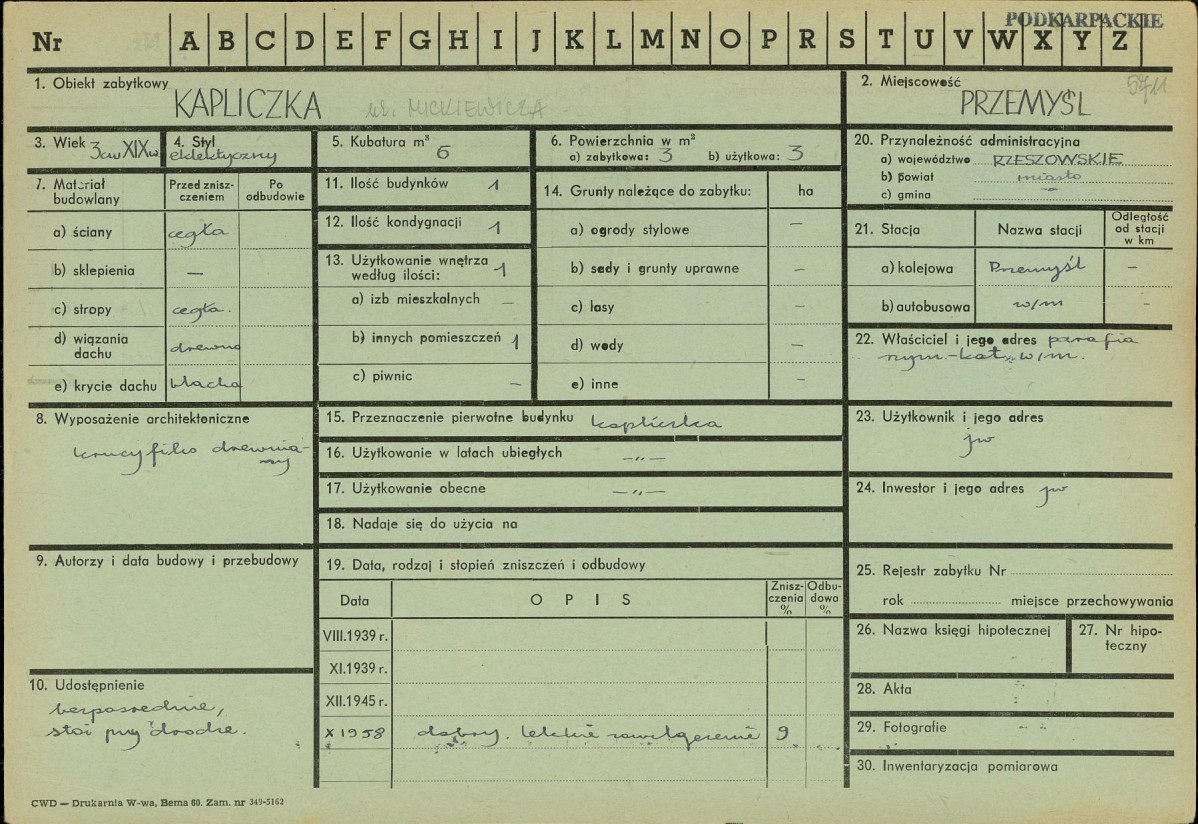 PODKARPACKIE
Nr A B C D E F G H I J K L M N O P R S T U V W X Y Z
1. Obiekt zabytkowy KAPLICZKA ul. MICKIEWICZA
2. Miejscowość PRZEMYŚL 5711
3. Wiek 3ćw XIX w.
4. Styl eklektyczny
5. Kubatura m³ 6
6. Powierzchnia w m²
a) zabytkowa: 3 b) użytkowa: 3
20. Przynależność administracyjna
a) województwo RZESZOWSKIE
b) powiat miasto
c) gmina —
7. Materiał budowlany
Przed znisz-
czeniem
Po
odbudowie
a) ściany cegła
b) sklepienia —
c) stropy cegła.
d) wiązania
dachu drewno
e) krycie dachu blacha
11. Ilość budynków 1
12. Ilość kondygnacji 1
13. Użytkowanie wnętrza
według ilości: 1
a) izb mieszkalnych —
b) innych pomieszczeń 1
c) piwnic —
14. Grunty należące do zabytku: ha
a) ogrody stylowe —
b) sady i grunty uprawne —
c) lasy —
d) wody —
e) inne —
21. Stacja Nazwa stacji
Odległość
od stacji
w km
a) kolejowa Przemyśl —
b) autobusowa w/m —
22. Właściciel i jego adres parafia
rzym.-kat. w/m.
8. Wyposażenie architektoniczne
krucyfiks drewnia-
ny
15. Przeznaczenie pierwotne budynku kapliczka
16. Użytkowanie w latach ubiegłych —„—
17. Użytkowanie obecne —„—
18. Nadaje się do użycia na
23. Użytkownik i jego adres
jw
24. Inwestor i jego adres jw
9. Autorzy i data budowy i przebudowy
19. Data, rodzaj i stopień zniszczeń i odbudowy
Data OPIS
Znisz-
czenia
%
Odbu-
dowa
%
VIII.1939 r.
XI.1939 r.
XII.1945 r.
X 1958 dobry. lekkie zawilgocenie 9
25. Rejestr zabytku Nr
rok miejsce przechowywania
26. Nazwa księgi hipotecznej
27. Nr hipo-
teczny
10. Udostępnienie
bezpośrednie,
stoi przy drodze.
28. Akta
29. Fotografie
30. Inwentaryzacja pomiarowa
CWD — Drukarnia W-wa, Bema 60. Zam. nr 349-5162